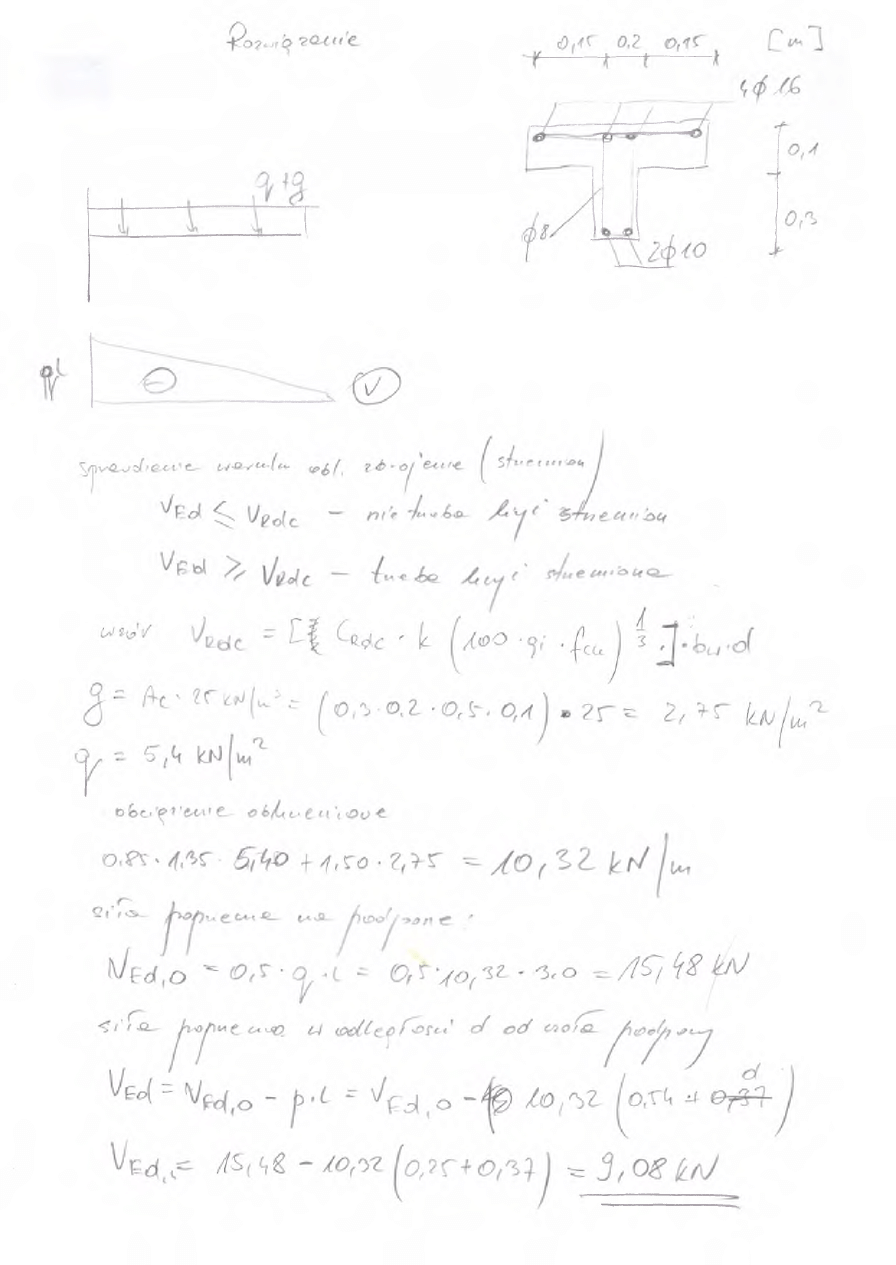 Rozwiązanie
0,15 0.2 0,15 [m]
4ϕ16
0,1
0,3
ϕ8
2ϕ10
q+g
ql
V
sprawdzenie warunku obl. zbrojenie (strzemion)
VEd ≤ VRdc – nie trzeba liczyć strzemion
VEd ≥ VRdc – trzeba liczyć strzemiona
wzór VRdc = [CRdc · k (100 · ϱi · fck)^1/3 ·] · bw·d
g = Ac · 25 kN/m³ = (0,3·0.2·0,5·0,1) · 25 = 2,75 kN/m²
q = 5,4 kN/m²
obciążenie obliczeniowe
0.85 · 1,35 · 5,40 + 1,50 · 2,75 = 10,32 kN/m
siła poprzeczna na podporze:
VEd,0 = 0,5 · q · l = 0,5·10,32 · 3,0 = 15,48 kN
siła poprzeczna w odległości d od czoła podpory
VEd = VEd,0 – p·l = VEd,0 – 10,32 (0,54 + d)
VEd,1 = 15,48 – 10,32 (0,25+0,37) = 9,08 kN